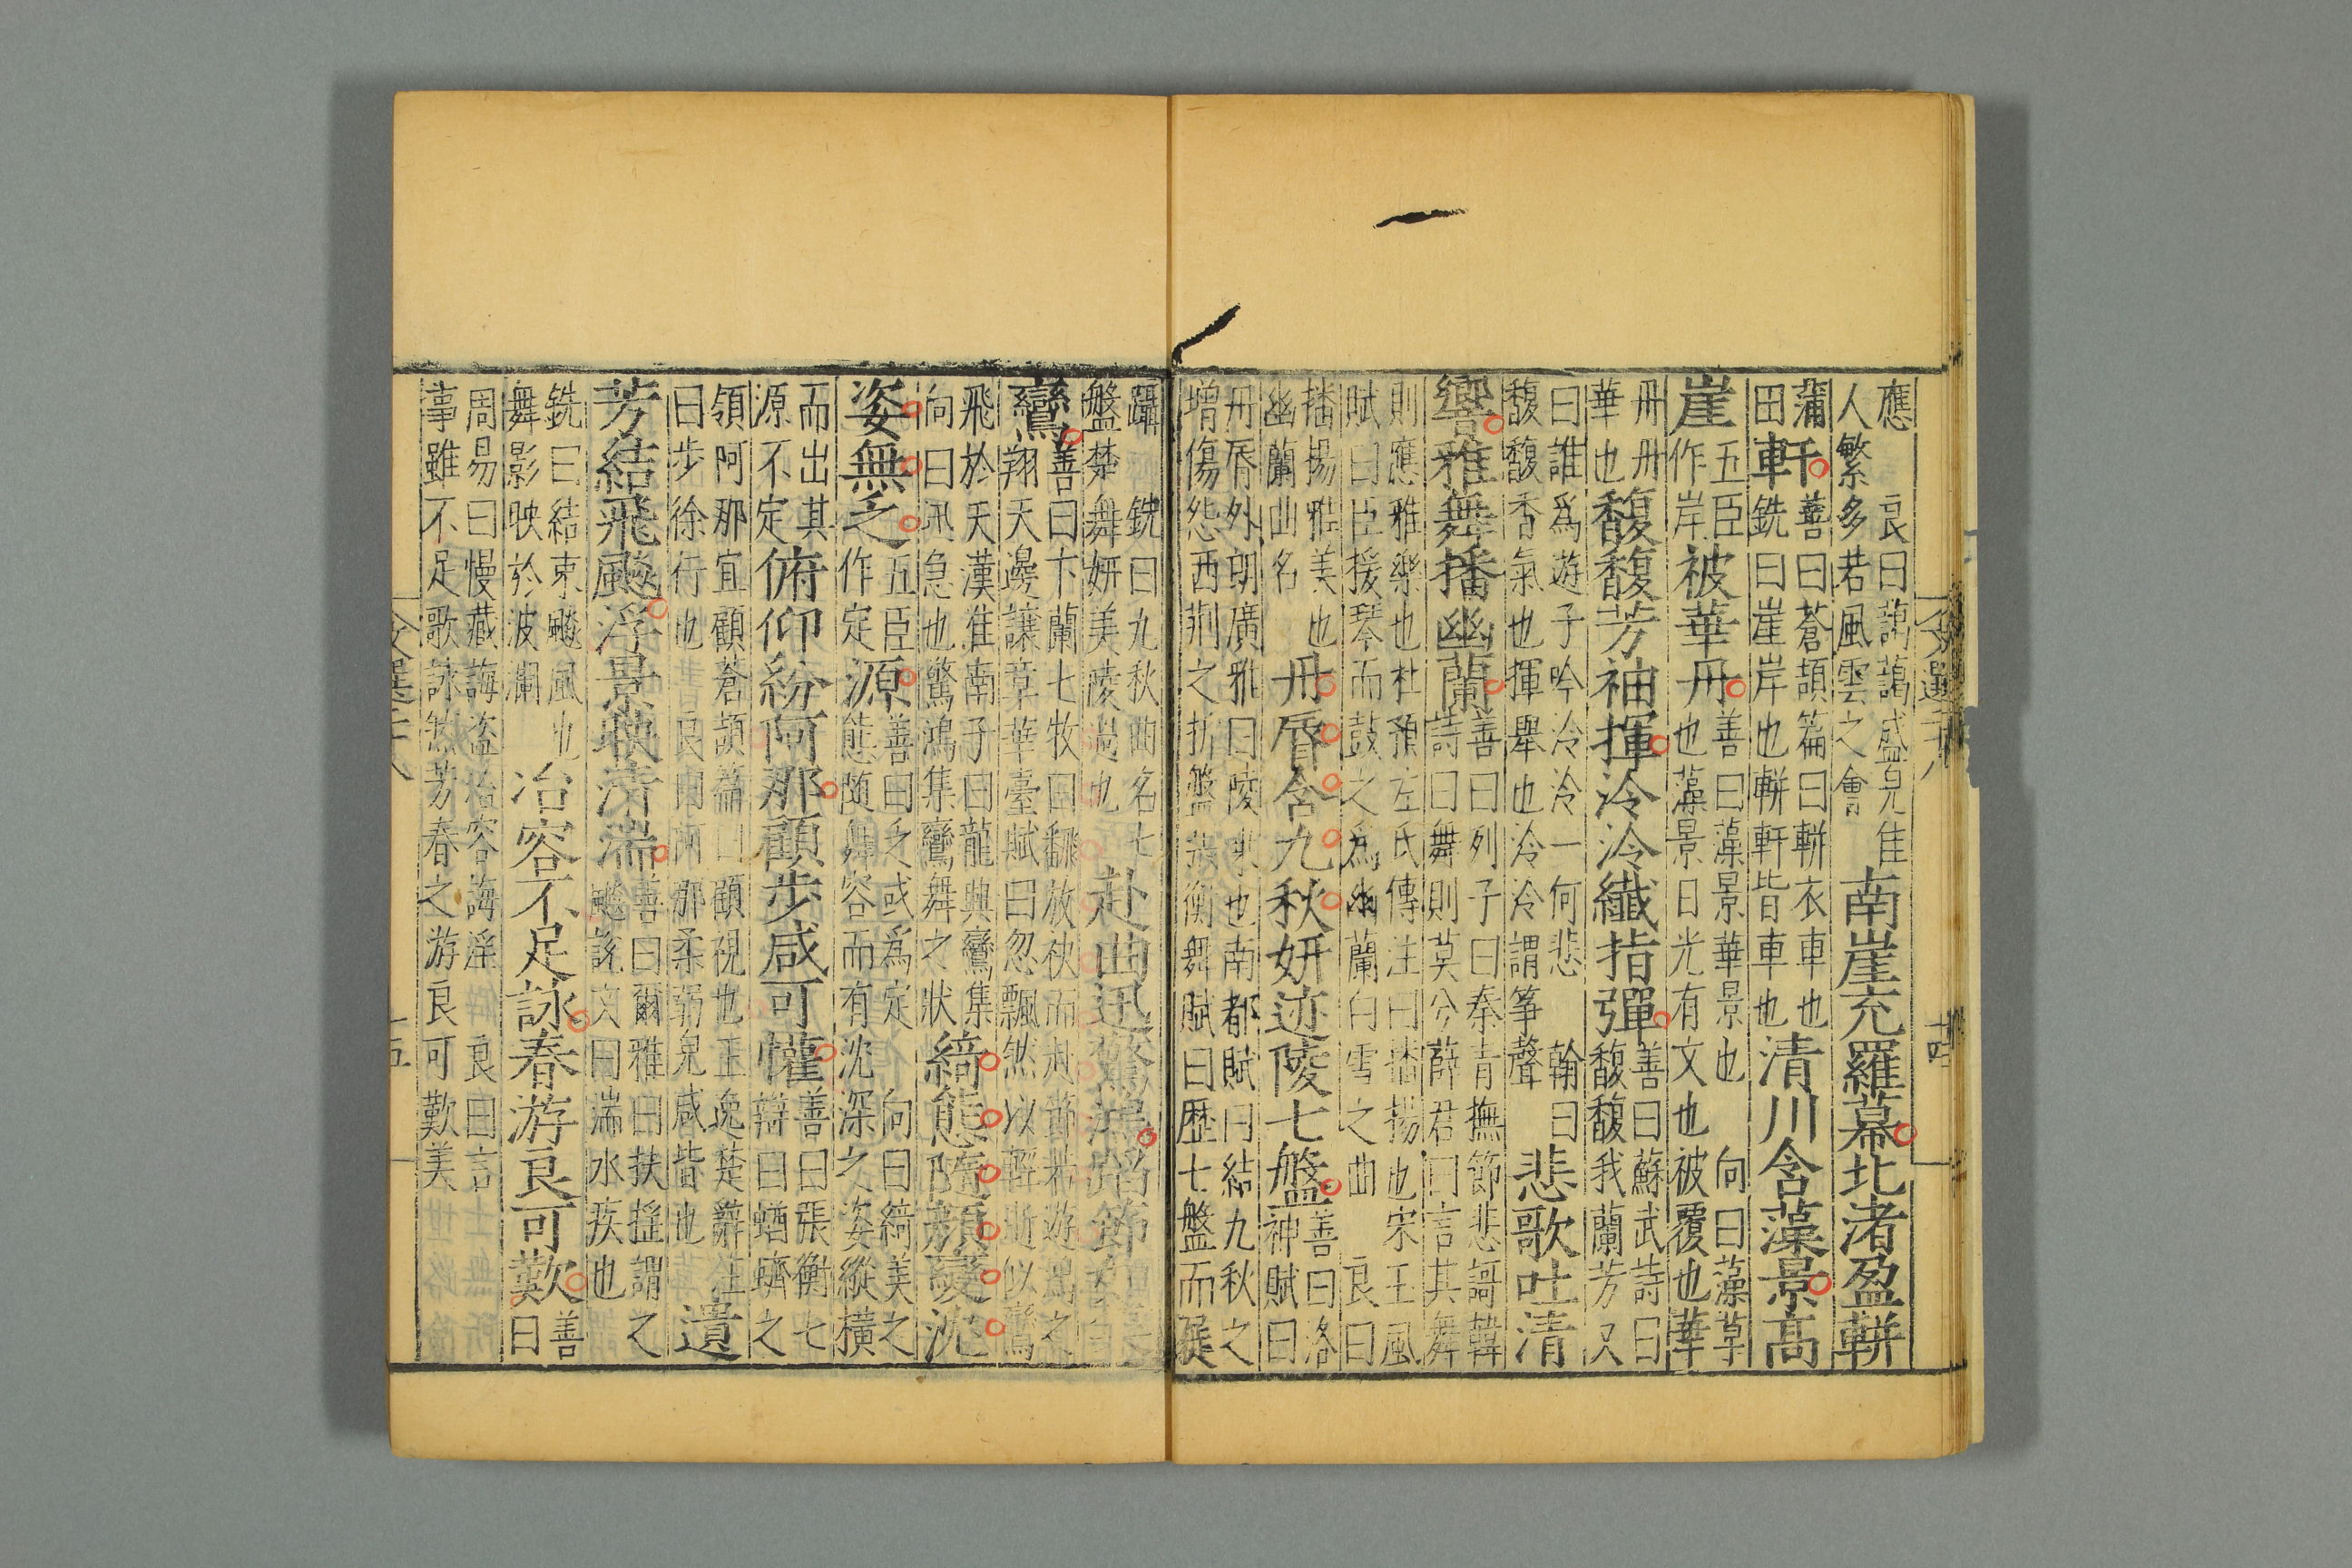 應　良曰藹藹盛皃隹
人繁多若風雲之會　南崖充羅幕北渚盈軿
蒲軒善曰蒼頡篇曰軿衣車也
田軒銑曰崖岸也軿軒皆車也　清川含藻景高
崖五臣作岸被華丹善曰藻景華景也　向曰藻草
也藻景日光有文也　被覆也華
丹丹
華也馥馥芳袖揮泠泠纖指彈善曰蘇武詩曰
馥馥我蘭芳又
曰誰爲遊子吟泠泠一何悲　翰曰
馥馥香氣也揮舉也泠泠謂箏聲　悲歌吐清
響雅舞播幽蘭善曰列子曰秦青撫節悲謌韓
詩曰舞則莫兮薛君曰言其舞
則應雅樂也杜預左氏傳注曰播揚也宋玉風
賦曰臣援琴而鼓之爲幽蘭白雪之曲　良曰
播揚雅美也
幽蘭曲名　丹脣含九秋妍迹陵七盤善曰洛
神賦曰
丹脣外朗廣雅曰陵乘也南都賦曰結九秋之
增傷怨西荆之折盤張衡舞賦曰歷七盤而屣
躡　銑曰九秋曲名七
盤楚舞妍美陵過也　赴曲迅驚鴻蹈節
鸞善曰卞蘭七牧曰翻放袂而赴節若遊鸞之
翔天邊讓章華臺賦曰忽飄然以輕逝似鸞
飛於天漢淮南子曰龍興鸞集
向曰迅急也驚鴻集鸞舞之狀　綺態隨顏變沈
姿無乏五臣作定源善曰乏或爲定　向曰綺美之
態隨舞容而有沈深之姿縱橫
而出其
源不定俯仰紛阿那顧步咸可懽善曰張衡七
辯曰蝤蠐之
領阿那宜顧蒼頡篇曰顧視也王逸楚辭注
曰步徐行也　良曰阿那柔弱皃咸皆也　遺
芳結飛飈浮景映清湍善曰爾雅曰扶搖謂之
飈說文曰湍水疾也
銑曰結束飈風也
舞影映於波瀾　冶容不足詠春游良可歎善
曰
周易曰慢藏誨盜冶容誨淫　良曰言
事雖不足歌詠然芳春之游良可歎美